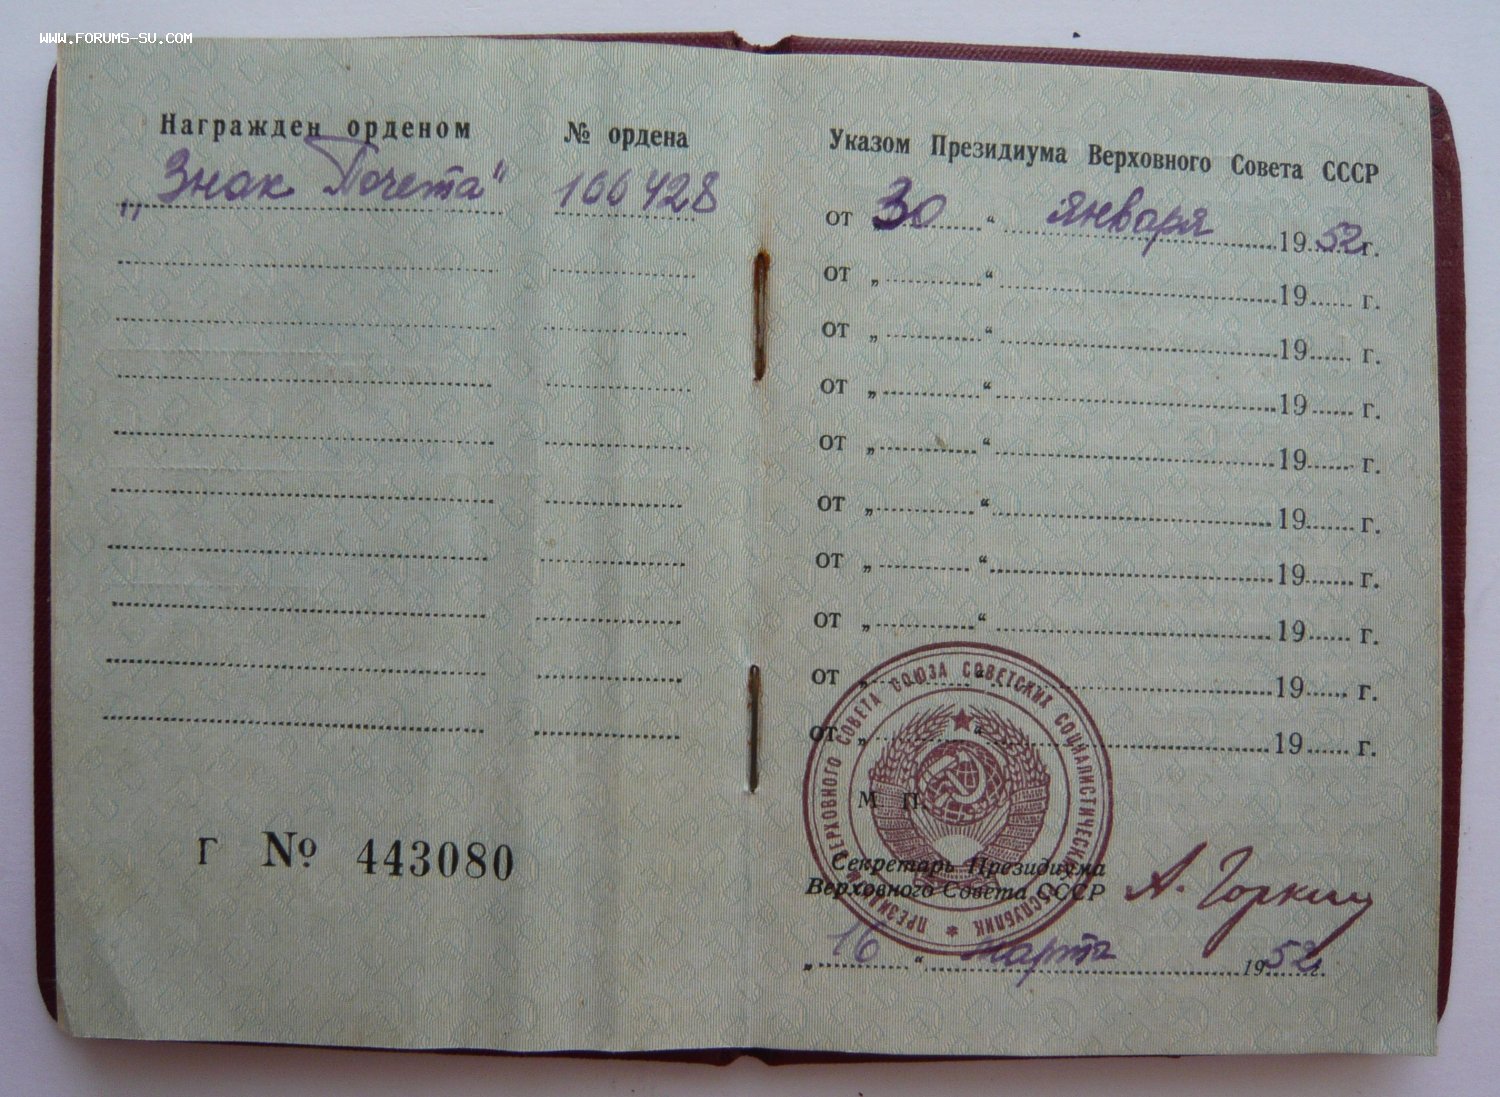 WWW.FORUMS-SU.COM
Награжден орденом № ордена
„Знак Почета“ 166428
Г № 443080
Указом Президиума Верховного Совета СССР
от „30“ января 1952 г.
от „ “ 19 г.
от „ “ 19 г.
от „ “ 19 г.
от „ “ 19 г.
от „ “ 19 г.
от „ “ 19 г.
от „ “ 19 г.
от „ “ 19 г.
от „ “ 19 г.
ПРЕЗИДИУМ ВЕРХОВНОГО СОВЕТА СОЮЗА СОВЕТСКИХ СОЦИАЛИСТИЧЕСКИХ РЕСПУБЛИК
М. П.
Секретарь Президиума
Верховного Совета СССР А. Горкин
„16“ марта 1952 г.